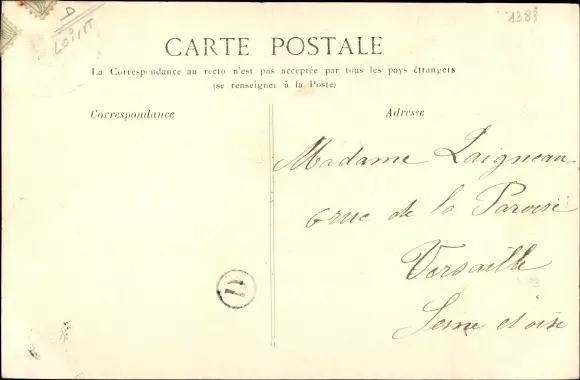 LOIRET
1383
CARTE POSTALE
La Correspondance au recto n'est pas acceptée par tous les pays étrangers
(se renseigner à la Poste)
Correspondance
Adresse
Madame Laigneau
6 rue de la Paroise
Versaille
Seine et oise